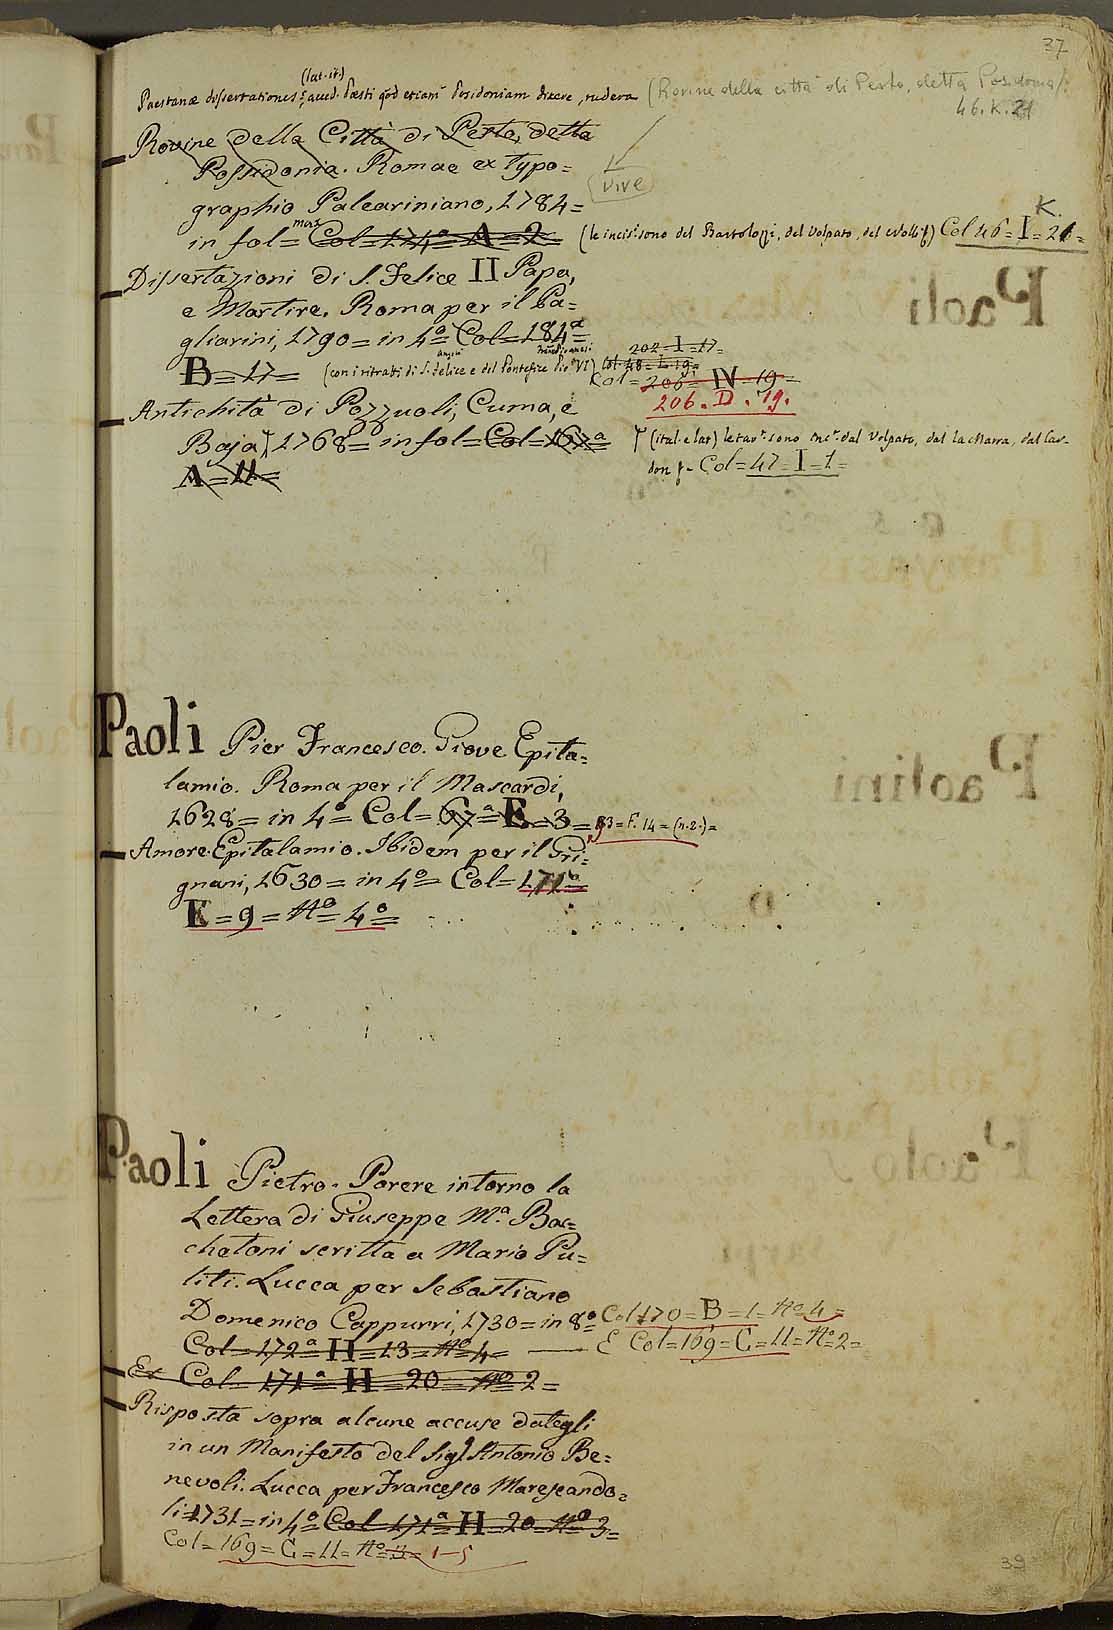 37
(lat. it.)
Paestanæ dissertationes; Pæsti quod etiam Posidoniam dixere, rudera (Rovine della città di Pesto, detta Posidonia).
46. K. 21
Rovine della Città di Pesto, detta
Possidonia. Romae ex typo=
vive
graphio Paleariniano, 1784=
in fol= max Col= 174ª= A= 2= (le incisi. sono del Bartolozzi, del Volpato, del) Col 46= I= 21=
K.
Dissertazioni di S. Felice II Papa,
e Martire. Roma per il Pa=
gliarini, 1790= in 4º= Col= 184ª=
B= 17= (con i ritratti di S. Felice e del Pontefice Pio VI)
202= I= 17=
Col. 48= L. 19=
Col= 206= IV= 19=
206. D. 19.
Antichità di Pozzuoli, Cuma, e
Baja, 1768= in fol= Col= 167ª= (ital. e lat) le tav. sono inc. dal Volpato, dal la Marra, dal Car-
don Col= 47= I= 1=
A= 11=
Paoli Pier Francesco. Giove Epita=
lamio. Roma per il Mascardi,
1628= in 4º= Col= 67ª= E= 3= F. 14= (n.2.)=
Amore Epitalamio. Ibidem per il Gri=
gnani, 1630= in 4º= Col= 171ª=
E= 9= Nº= 4º=
Paoli Pietro. Parere intorno la
Lettera di Giuseppe M.ª Bac=
chetoni scritta a Mario Pu=
liti. Lucca per Sebastiano
Domenico Cappurri, 1730= in 8º= Col 170= B= 1= Nº 4=
Col= 172ª H= 13= Nº 4= E Col= 169= G= 11= Nº 2=
Et Col= 171ª= H= 20= Nº 2=
Risposta sopra alcune accuse dategli
in un Manifesto del Sig. Antonio Be=
nevoli. Lucca per Francesco Marescando=
li 1731= in 4º= Col= 171ª H= 20= Nº 3=
Col= 169= G= 11= Nº= 3= 1-5
39